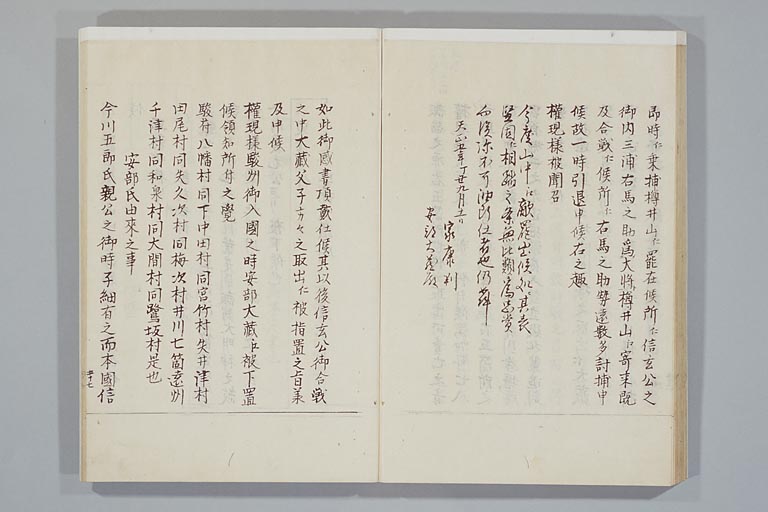 即時ニ乗捕樽井山ニ罷在候所ニ信玄公之
御内三浦右馬之助為大将樽井山ニ寄来既
及合戦ニ候所ニ右馬之助勢還数多討捕申
候故一時引退申候右之趣
権現様被聞召
今度山中ニ敵罷出候処其表
堅固ニ相踏之条無比類為忠賞
向後
天正 九月五日
家康判
安部大蔵殿
如此御感書頂戴仕候其以後信玄公御合戦
之中大蔵父子方々之取出ニ被指置之旨承
及申候
権現様駿州御入国之時安部大蔵ニ被下置
候領知所付之覚
駿府八幡村同下中田村同宮竹村矢井津村
田尾村同矢久次村同梅次村井川七箇遠州
千津村同和泉村同大間村同鷺坂村是也
安部氏由来之事
今川五郎氏親公之御時子細有之而本国信